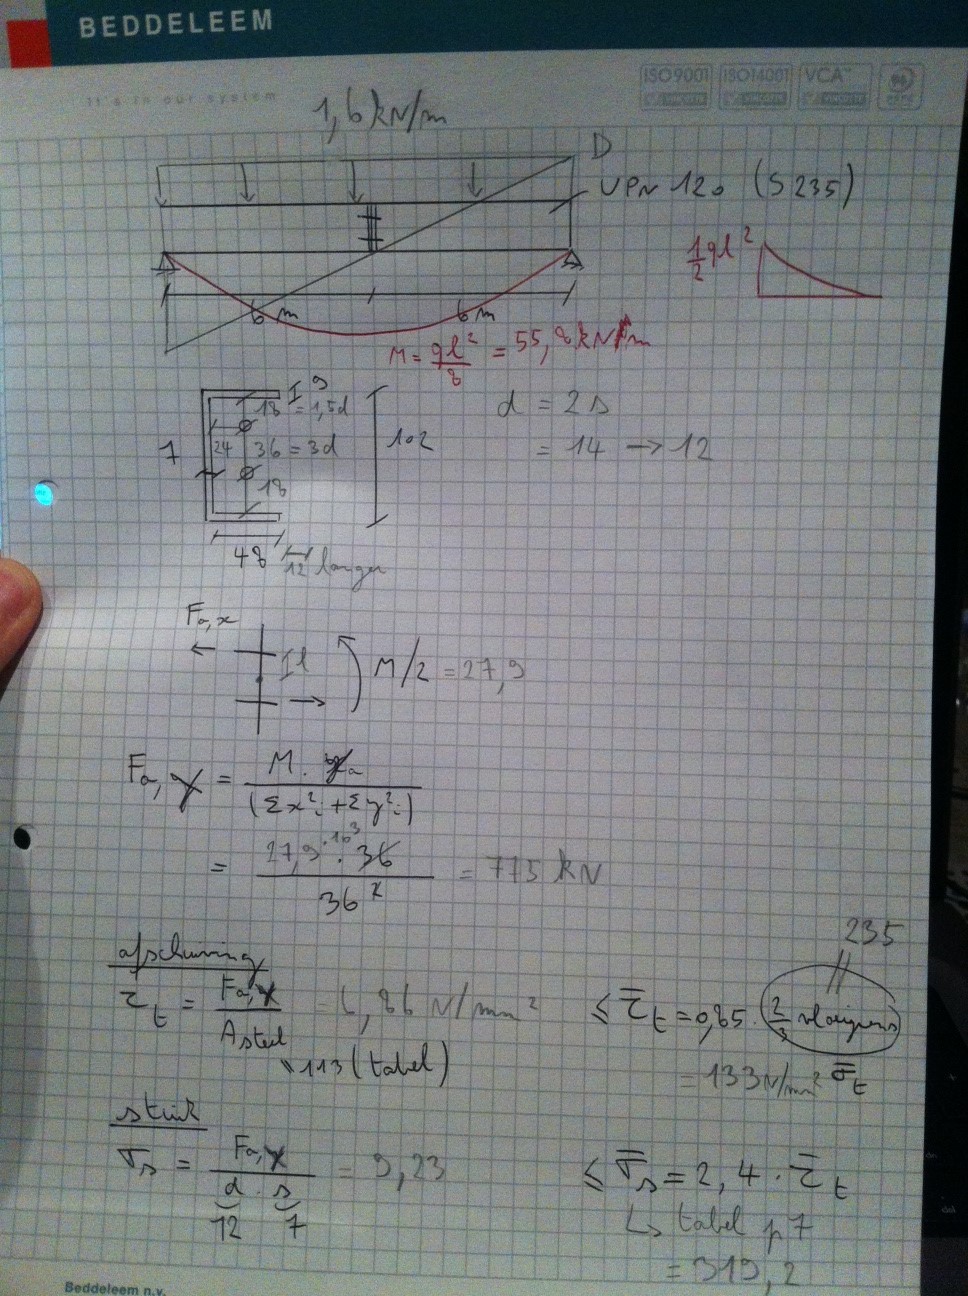 BEDDELEEM
It's in our system
ISO9001 ISO14001 VCA
1,6 kN/m
D
UPN 120 (S 235)
1/2 ql²
6 m 6 m
M = ql²/8 = 55,8 kN/m
9
18 = 1,5d
7 24 36 = 3d 102
18
48 12 langer
d = 2s
= 14 → 12
Fa,x
M/2 = 27,9
Fa,x = M . ya / (Σx²i + Σy²i)
= 27,9 . 10³ . 36 / 36² = 775 kN
afschuiving
235
τt = Fa,x / Asteel = 6,86 N/mm² ≤ τ̄t = 0,85 . 2/3 vloeigrens
113 (tabel)
= 133 N/mm² σ̄t
stuik
σs = Fa,x / d . s = 9,23 ≤ σ̄s = 2,4 . τ̄t
12 7
↳ tabel p 7
= 319,2
Beddeleem n.v.